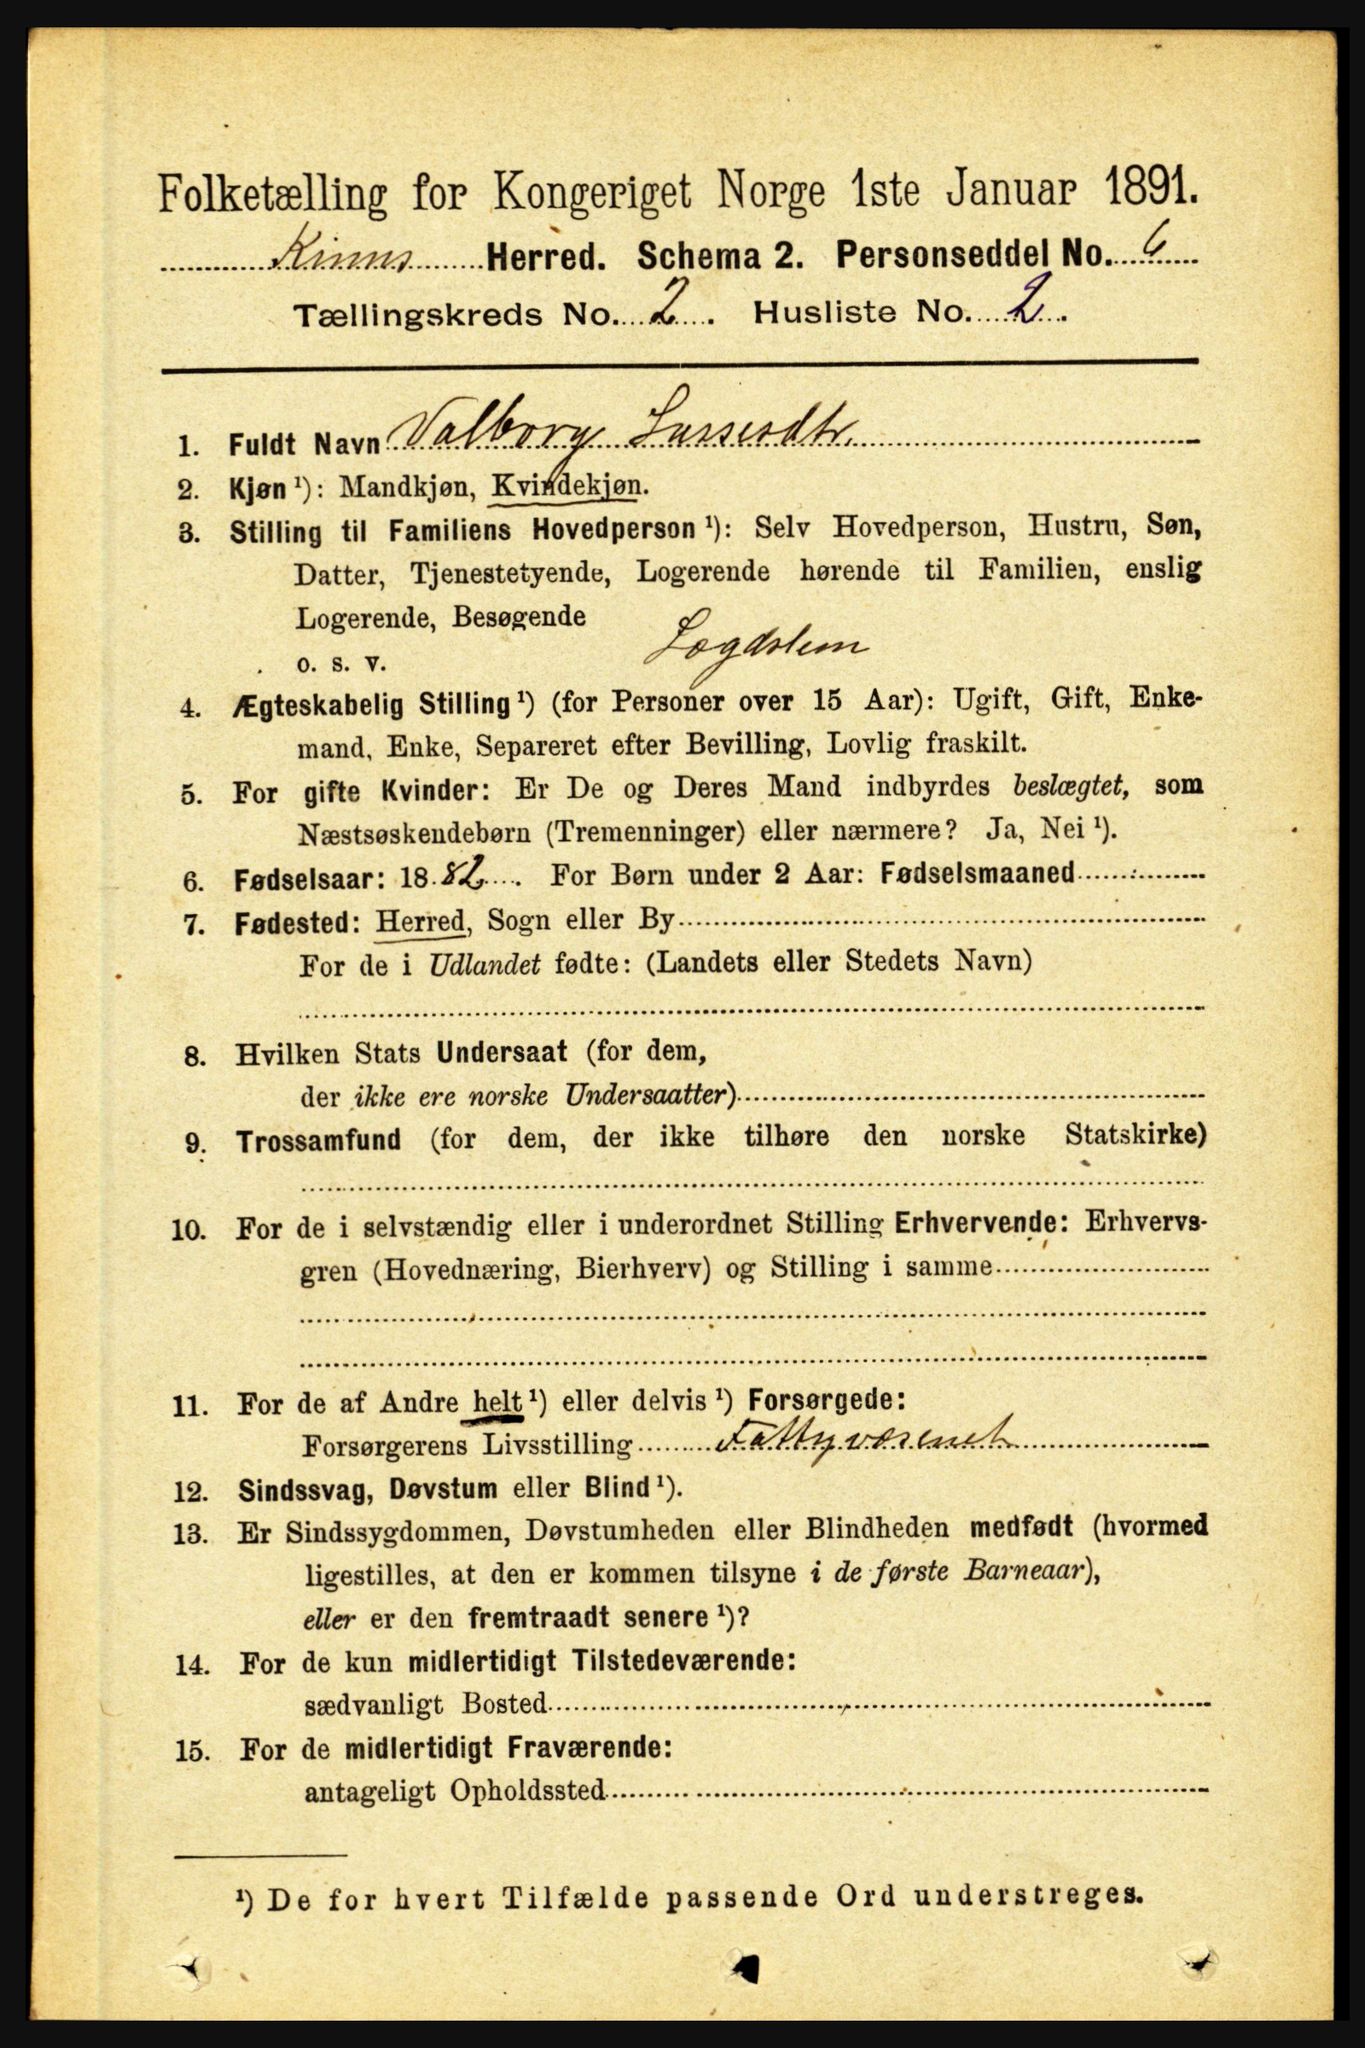 Folketælling for Kongeriget Norge 1ste Januar 1891.
Kinns Herred. Schema 2. Personseddel No. 6
Tællingskreds No. 2. Husliste No. 2.
1. Fuldt Navn Valborg Lassesdtr.
2. Kjøn ¹): Mandkjøn, Kvindekjøn.
3. Stilling til Familiens Hovedperson ¹): Selv Hovedperson, Hustru, Søn,
Datter, Tjenestetyende, Logerende hørende til Familien, enslig
Logerende, Besøgende
o. s. v. Lægdslem
4. Ægteskabelig Stilling ¹) (for Personer over 15 Aar): Ugift, Gift, Enke-
mand, Enke, Separeret efter Bevilling, Lovlig fraskilt.
5. For gifte Kvinder: Er De og Deres Mand indbyrdes beslægtet, som
Næstsøskendebørn (Tremenninger) eller nærmere? Ja, Nei ¹).
6. Fødselsaar: 1882. For Børn under 2 Aar: Fødselsmaaned
7. Fødested: Herred, Sogn eller By
For de i Udlandet fødte: (Landets eller Stedets Navn)
8. Hvilken Stats Undersaat (for dem,
der ikke ere norske Undersaatter)
9. Trossamfund (for dem, der ikke tilhøre den norske Statskirke)
10. For de i selvstændig eller i underordnet Stilling Erhvervende: Erhvervs-
gren (Hovednæring, Bierhverv) og Stilling i samme
11. For de af Andre helt ¹) eller delvis ¹) Forsørgede:
Forsørgerens Livsstilling Fattigvæsenet
12. Sindssvag, Døvstum eller Blind ¹).
13. Er Sindssygdommen, Døvstumheden eller Blindheden medfødt (hvormed
ligestilles, at den er kommen tilsyne i de første Barneaar),
eller er den fremtraadt senere ¹)?
14. For de kun midlertidigt Tilstedeværende:
sædvanligt Bosted
15. For de midlertidigt Fraværende:
antageligt Opholdssted
¹) De for hvert Tilfælde passende Ord understreges.